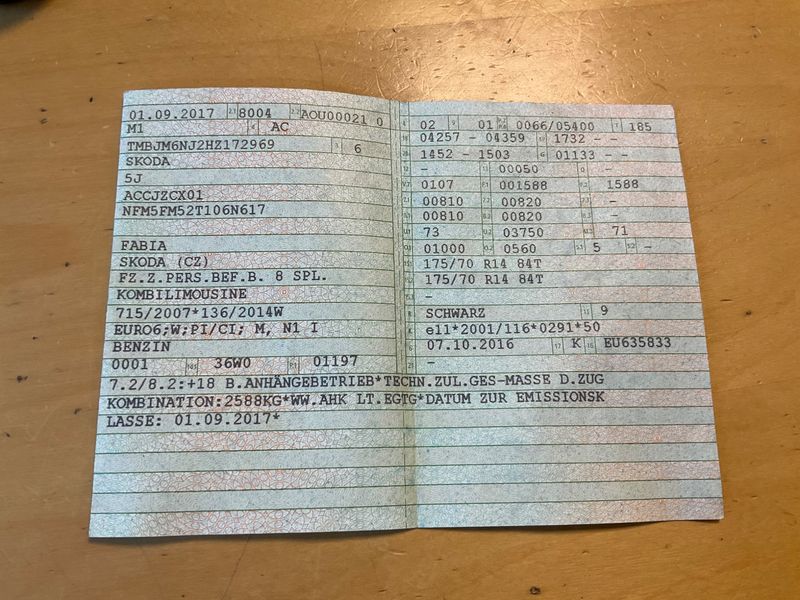 01.09.2017 8004 AOU00021 0
M1 AC
TMBJM6NJ2HZ172969 6
SKODA
5J
ACCJZCX01
NFM5FM52T106N617
FABIA
SKODA (CZ)
FZ.Z.PERS.BEF.B. 8 SPL.
KOMBILIMOUSINE
715/2007*136/2014W
EURO6;W;PI/CI; M, N1 I
BENZIN
0001 36W0 01197
02 01 0066/05400 185
04257 - 04359 1732 - -
1452 - 1503 01133 - -
- 00050 -
0107 001588 1588
00810 00820 -
00810 00820 -
73 03750 71
01000 0560 5 -
175/70 R14 84T
175/70 R14 84T
-
SCHWARZ 9
e11*2001/116*0291*50
07.10.2016 K EU635833
-
7.2/8.2:+18 B.ANHÄNGEBETRIEB*TECHN.ZUL.GES-MASSE D.ZUG
KOMBINATION:2588KG*WW.AHK LT.EGTG*DATUM ZUR EMISSIONSK
LASSE: 01.09.2017*